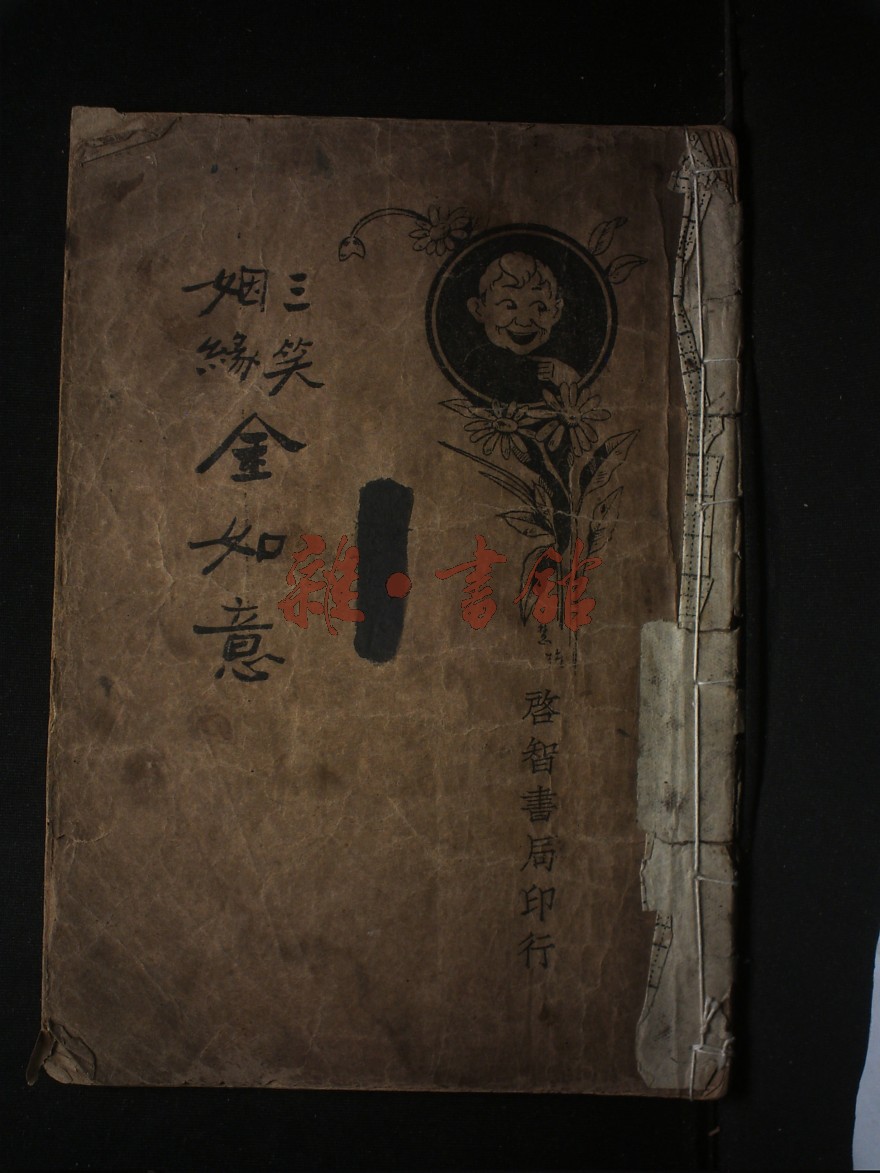 三笑
姻緣
金如意
啓智書局印行
雜·書館